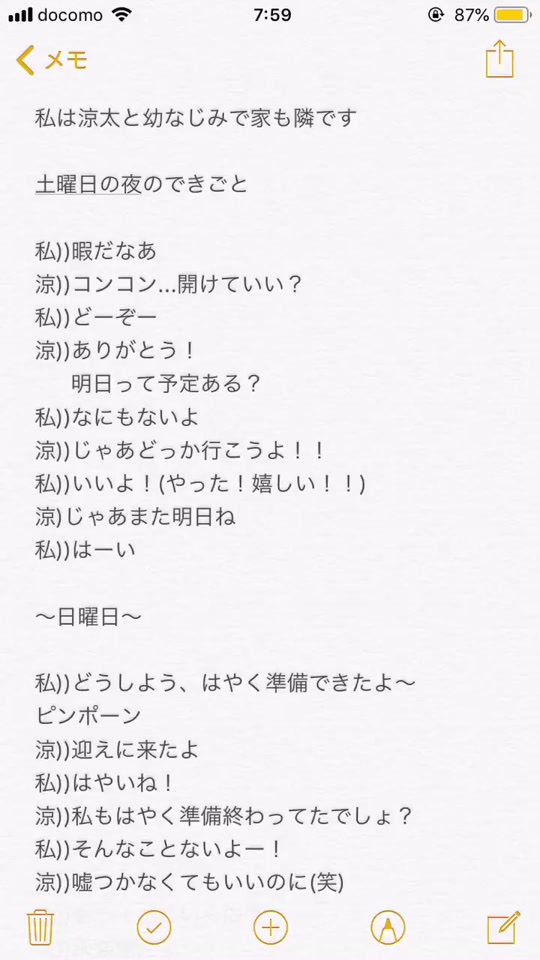 docomo 7:59 87%
メモ
私は涼太と幼なじみで家も隣です
土曜日の夜のできごと
私))暇だなあ
涼))コンコン…開けていい？
私))どーぞー
涼))ありがとう！
明日って予定ある？
私))なにもないよ
涼))じゃあどっか行こうよ！！
私))いいよ！(やった！嬉しい！！)
涼)じゃあまた明日ね
私))はーい
〜日曜日〜
私))どうしよう、はやく準備できたよ〜
ピンポーン
涼))迎えに来たよ
私))はやいね！
涼))私もはやく準備終わってたでしょ？
私))そんなことないよー！
涼))嘘つかなくてもいいのに(笑)